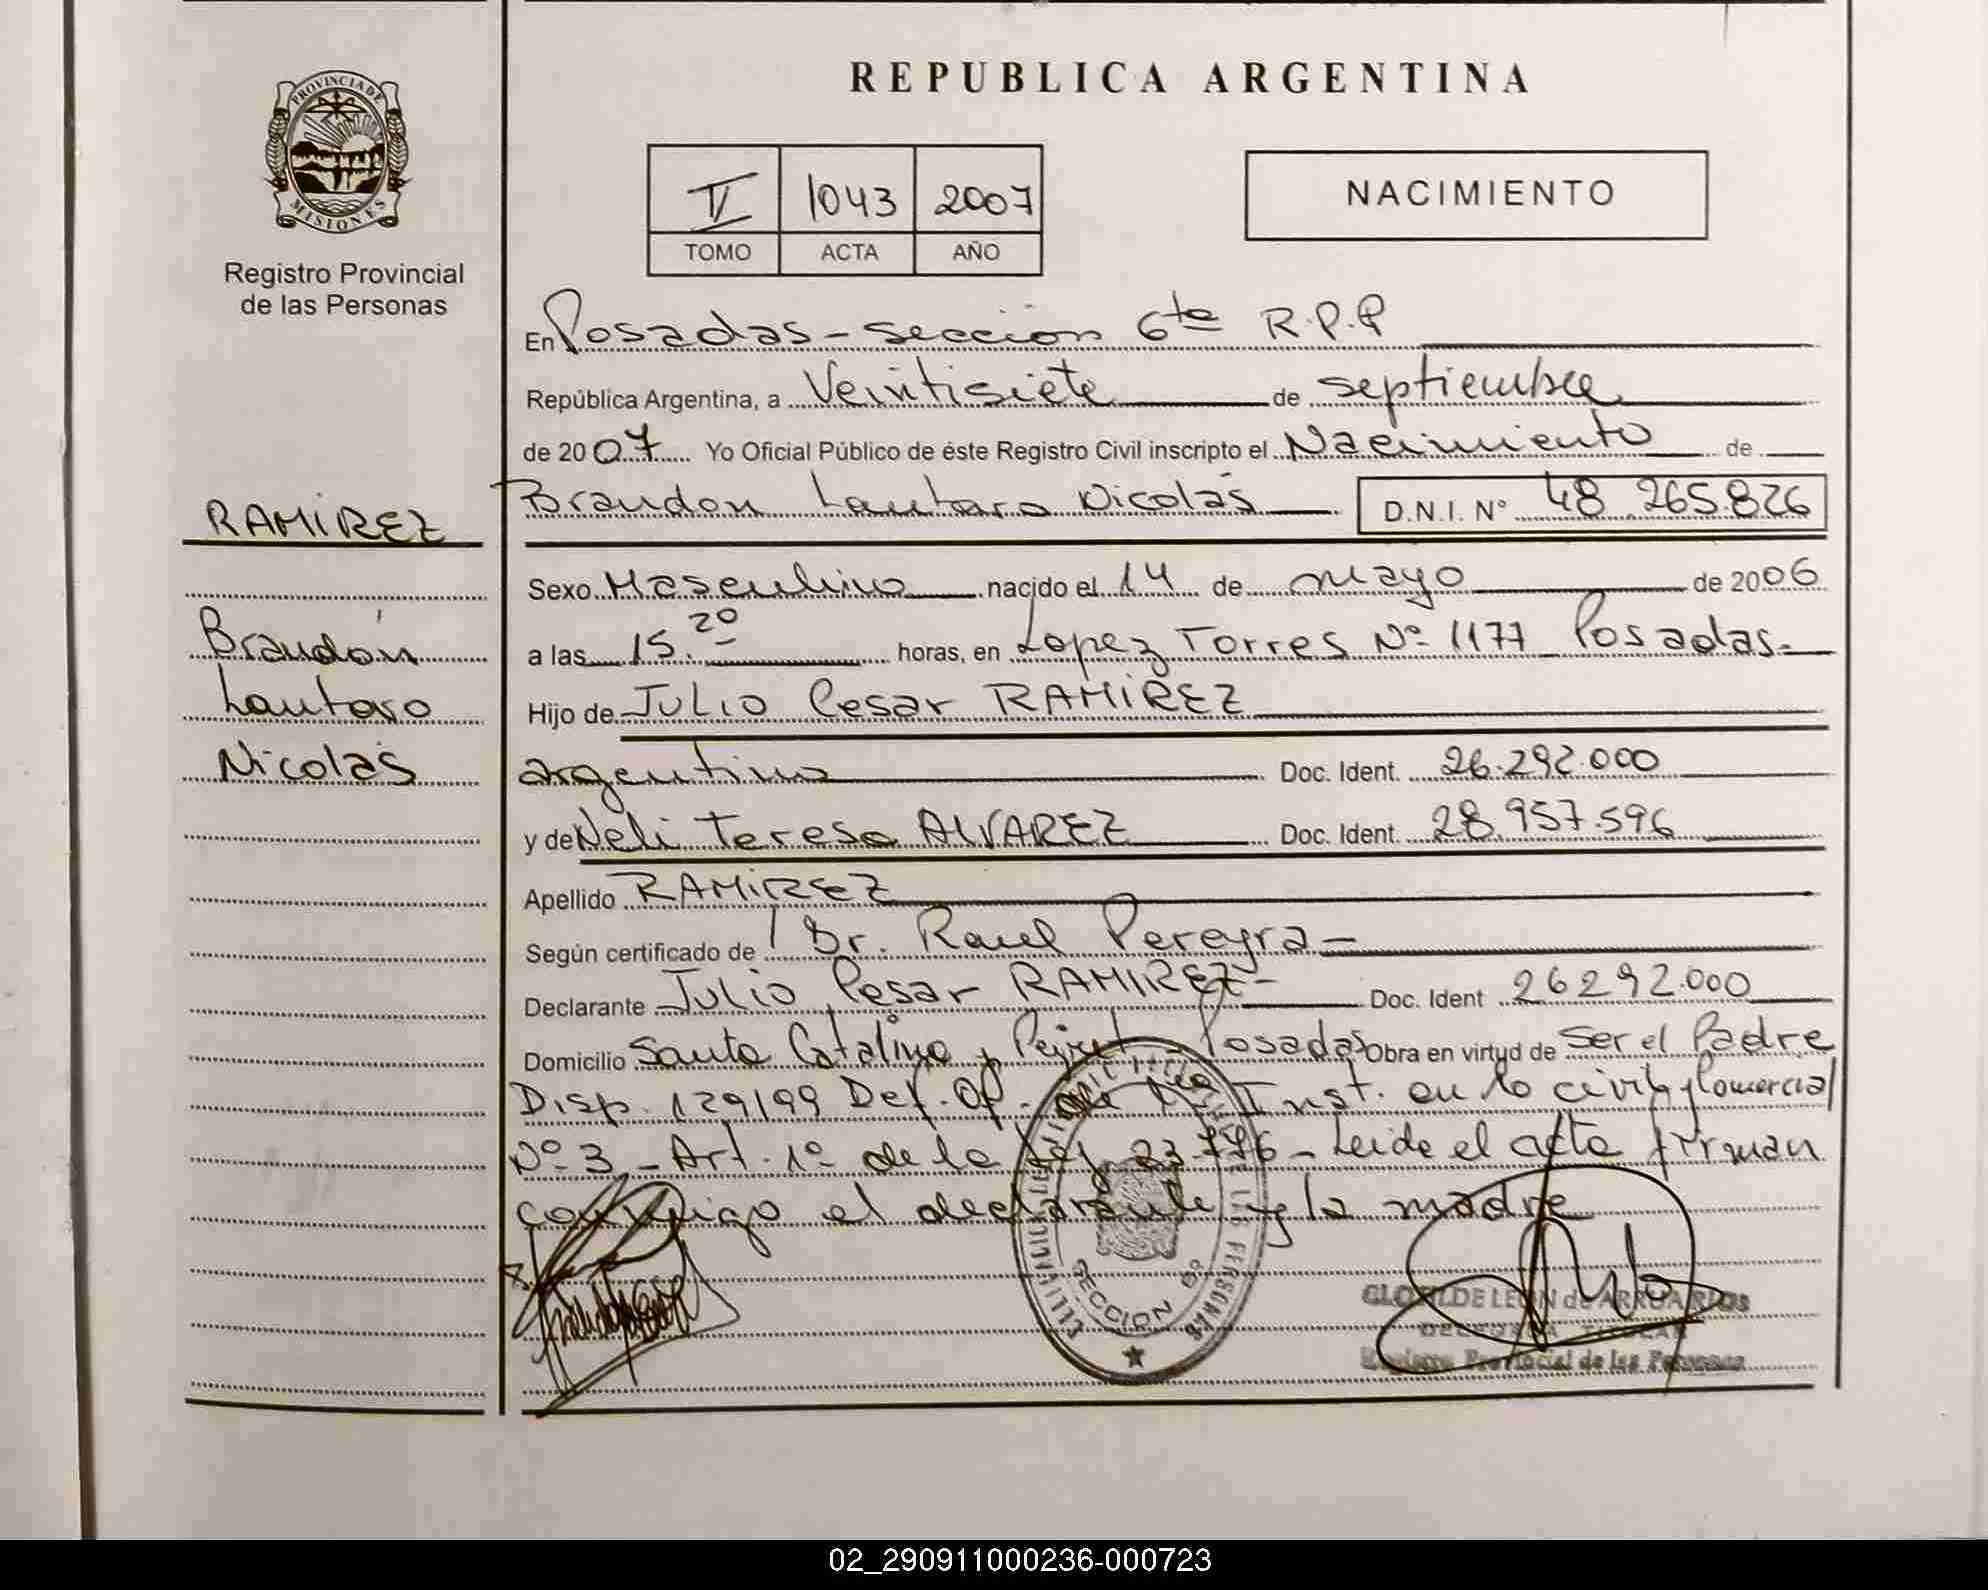 PROVINCIA DE
MISIONES
Registro Provincial
de las Personas
RAMIREZ
Brandón
Lautaro
Nicolás
REPUBLICA ARGENTINA
II 1043 2007
TOMO ACTA AÑO
NACIMIENTO
En Posadas - sección 6ta R.P.P
República Argentina, a Veintisiete de septiembre
de 2007 Yo Oficial Público de éste Registro Civil inscripto el Nacimiento de
Brandon Lautaro Nicolás D.N.I. N° 48.265.826
Sexo Masculino nacido el 14 de mayo de 2006
a las 15.20 horas, en Lopez Torres N° 1177 Posadas.
Hijo de Julio Cesar RAMIREZ
argentino Doc. Ident. 26.292.000
y de Neli Teresa ALVAREZ Doc. Ident. 28.957.596
Apellido RAMIREZ
Según certificado de Dr. Raul Pereyra -
Declarante Julio Cesar RAMIREZ - Doc. Ident 26292.000
Domicilio Santa Catalina y Posadas Obra en virtud de ser el Padre
Disp. 129/99 Def. Of. de 1ra Inst. en lo civil y Comercial
N° 3 - Art. 1° de la Ley 23.776 - Leida el acta firman
conmigo el declarante y la madre
SECCION 6°
DE LEON de ARRUA RIOS
DELEGADA TITULAR
Registro Provincial de las Personas
02_290911000236-000723